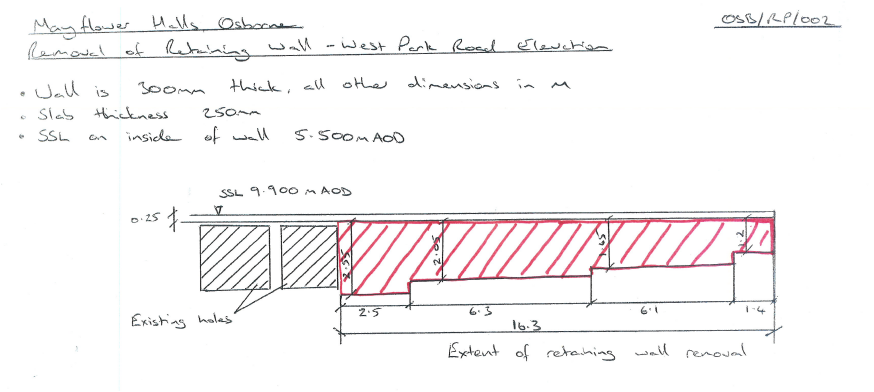 Mayflower Halls, Osborne
OSB/RP/002
Removal of Retaining Wall - West Park Road Elevation
• Wall is 300mm thick, all other dimensions in M
• Slab thickness 250mm
• SSL on inside of wall 5.500mAOD
SSL 9.900 mAOD
0.25
2.55
2.05
1.2
2.5
6.3
6.1
1.4
16.3
Existing holes
Extent of retaining wall removal